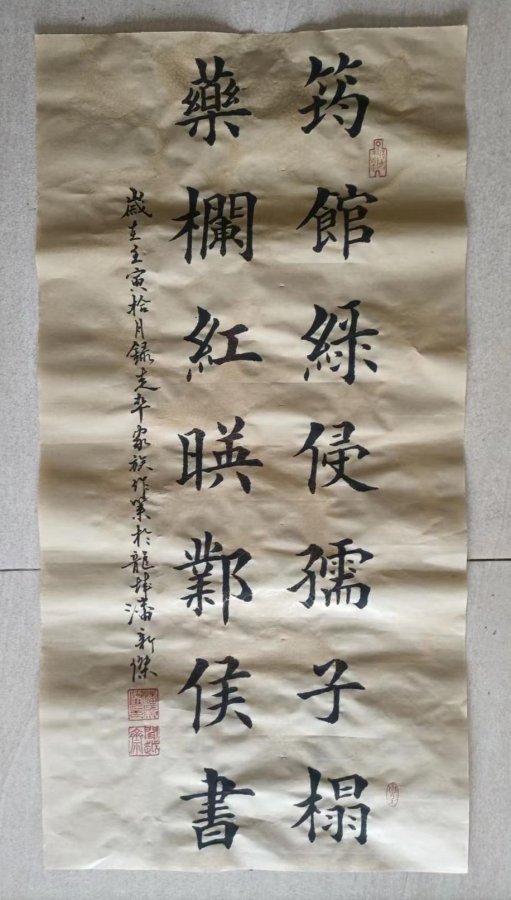 筠館綠侵孺子榻
藥欄紅暎鄴侯書
歲在壬寅拾月錄先卒家族作業於龍城潘新傑